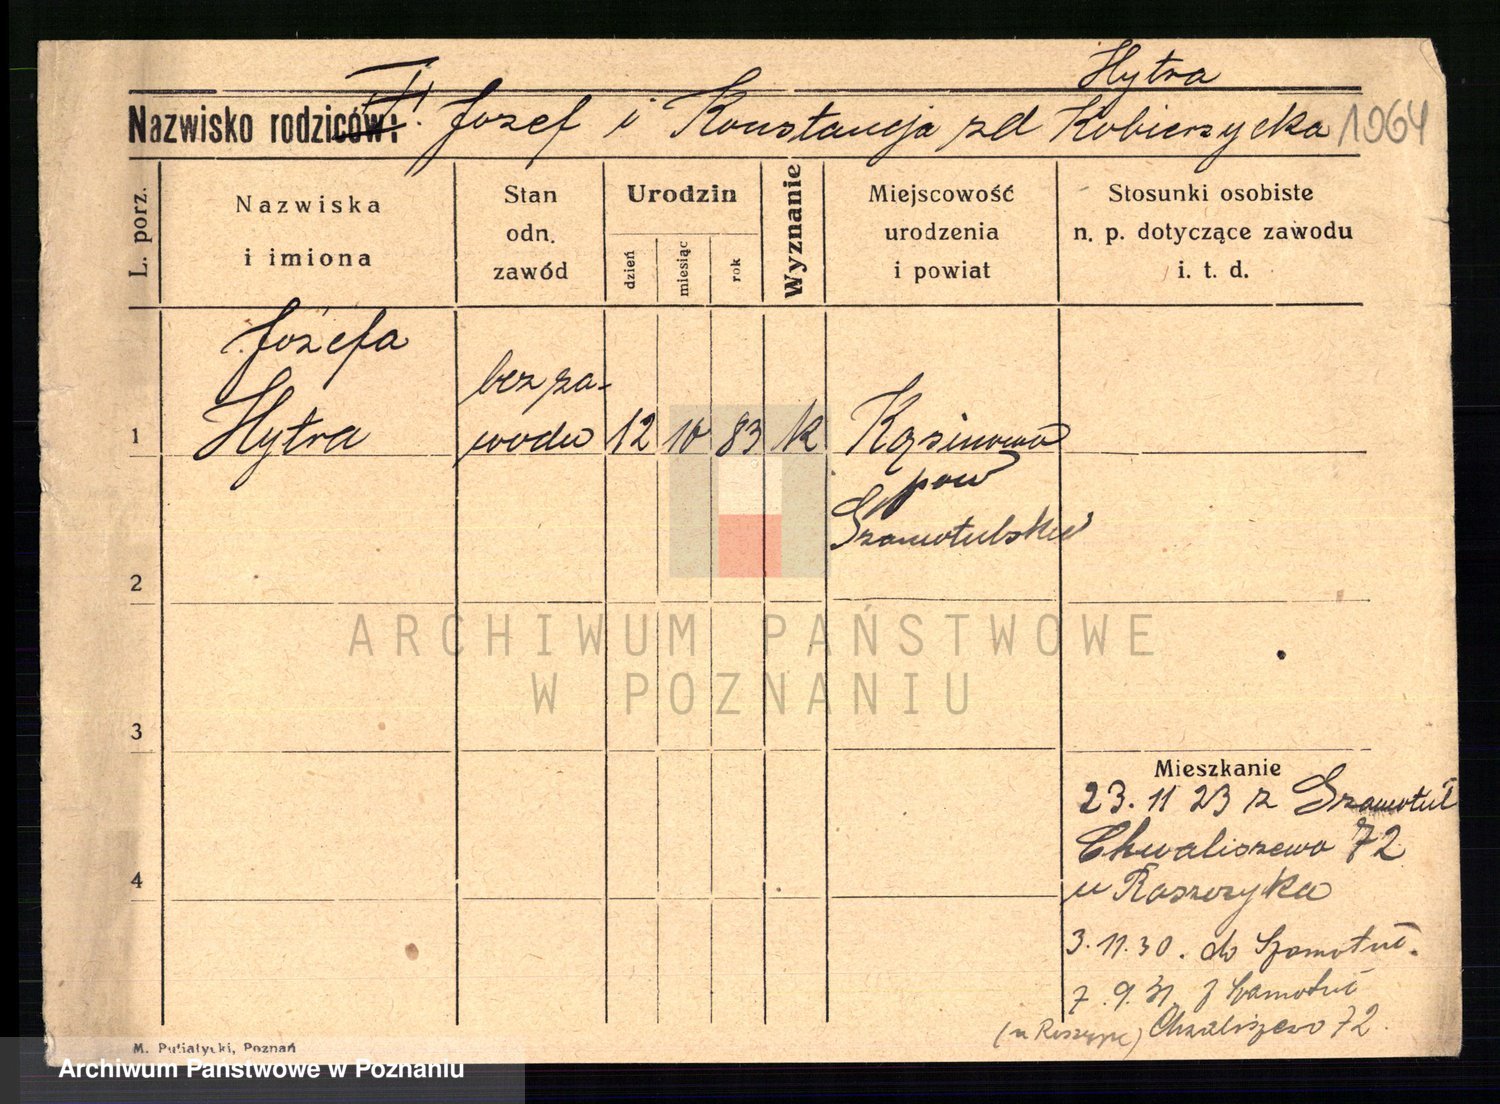 Hytra
Nazwisko rodziców: Józef i Konstancja zd Kobierzycka 1064
L. porz.
Nazwiska
i imiona
Stan
odn.
zawód
Urodzin
dzień
miesiąc
rok
Wyznanie
Miejscowość
urodzenia
i powiat
Stosunki osobiste
n. p. dotyczące zawodu
i. t. d.
Józefa
Hytra
bez za-
wodu
1
12 10 83 k
Kąsinowo
pow
Szamotulskie
2
3
4
Mieszkanie
23. 11 23 z Szamotuł
Chwaliszewo 72
u Raszczyka
3. 11. 30. do Szamotuł.
7. 9. 31 z Szamotuł
(u) Chwaliszewo 72.
M. Putiatycki, Poznań
ARCHIWUM PAŃSTWOWE
W POZNANIU
Archiwum Państwowe w Poznaniu